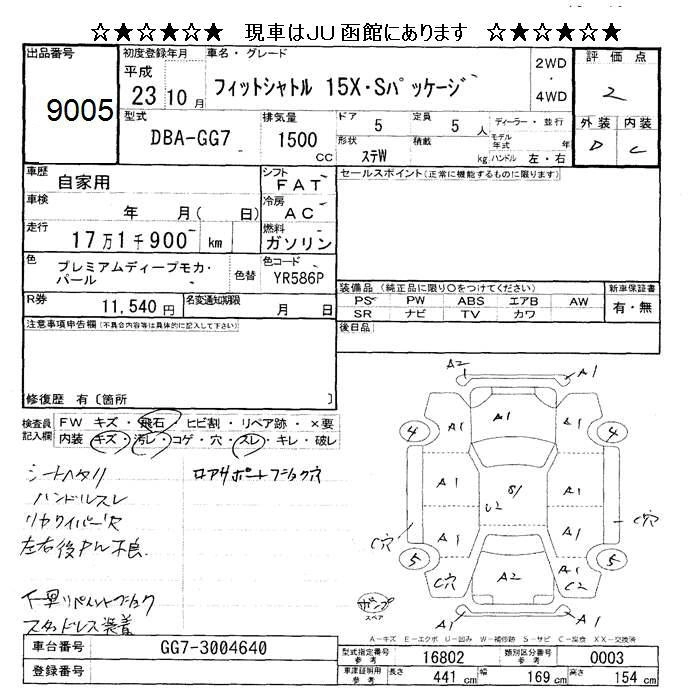 ☆★☆★☆★ 現車はJU函館にあります ☆★☆★☆★
出品番号
9005
初度登録年月
平成
23 10 月
車名・グレード
フィットシャトル 15X・Sパッケージ
2WD
・
4WD
評価点
2
型式
DBA-GG7
排気量
1500
CC
ドア 5
定員 5 人
ディーラー・並行
モデル年式 年
形状 ステW
積載 kg
ハンドル 左・右
外装 内装
D C
車歴
自家用
シフト
FAT
セールスポイント(正常に機能するものに限ります)
車検
年 月( 日)
冷房
AC
走行
17万1千900 km
燃料
ガソリン
色
プレミアムディープモカ・
パール
色替
色コード
YR586P
装備品(純正品に限り○をつけてください)
新車保証書
PS PW ABS エアB AW
有・無
SR ナビ TV カワ
R券
11,540 円
名変通知期限
月 日
後日品
注意事項申告欄(不具合内容等は具体的に記入して下さい)
修復歴 有〔箇所 〕
検査員
記入欄
FW キズ・飛石・ヒビ割・リペア跡・×要
内装 キズ・汚レ・コゲ・穴・スレ・キレ・破レ
シートヘタリ
ハンドルスレ
リヤワイパー穴
左右後Pル不良
下廻りペイントブラック
スタッドレス装着
ロアサポートブラック穴
A2
A1
A1
A1
A1
4
4
A1
A1
S/
U2
A1
A1
C穴
C穴
A1
5
5
C穴
A2
C2
A1
A1
A1
スペア
A-キズ E-エクボ U-凹み W-補修跡 S-サビ C-腐食 XX-交換済
車台番号
GG7-3004640
登録番号
型式指定番号
参考
16802
類別区分番号
参考
0003
車庫証明用
参考
長さ 441 cm
幅 169 cm
高さ 154 cm